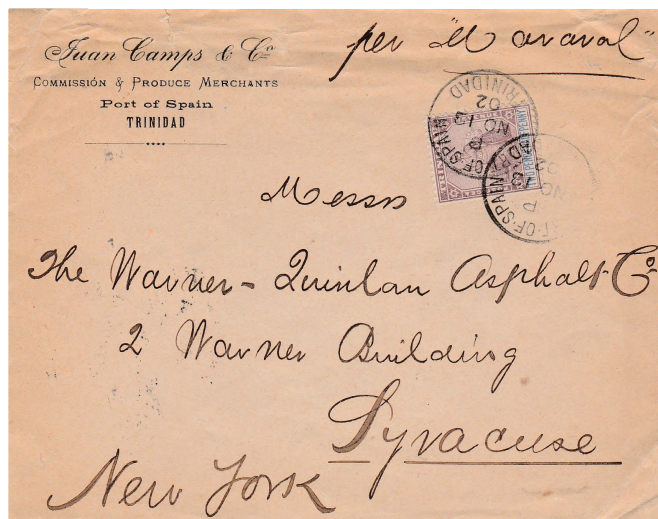 Juan Camps & Co
COMMISSIÓN & PRODUCE MERCHANTS
Port of Spain
TRINIDAD
per "Maraval"
TRINIDAD
PORT-OF-SPAIN
NO 13
02
TWO PENCE HALFPENNY
OF-SPAIN
NO 13
02
Messrs
The Warner-Quinlan Asphalt Co
2 Warner Building
Syracuse
New York